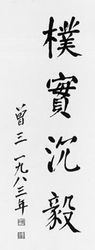 樸實沉毅
曾三一九八三年